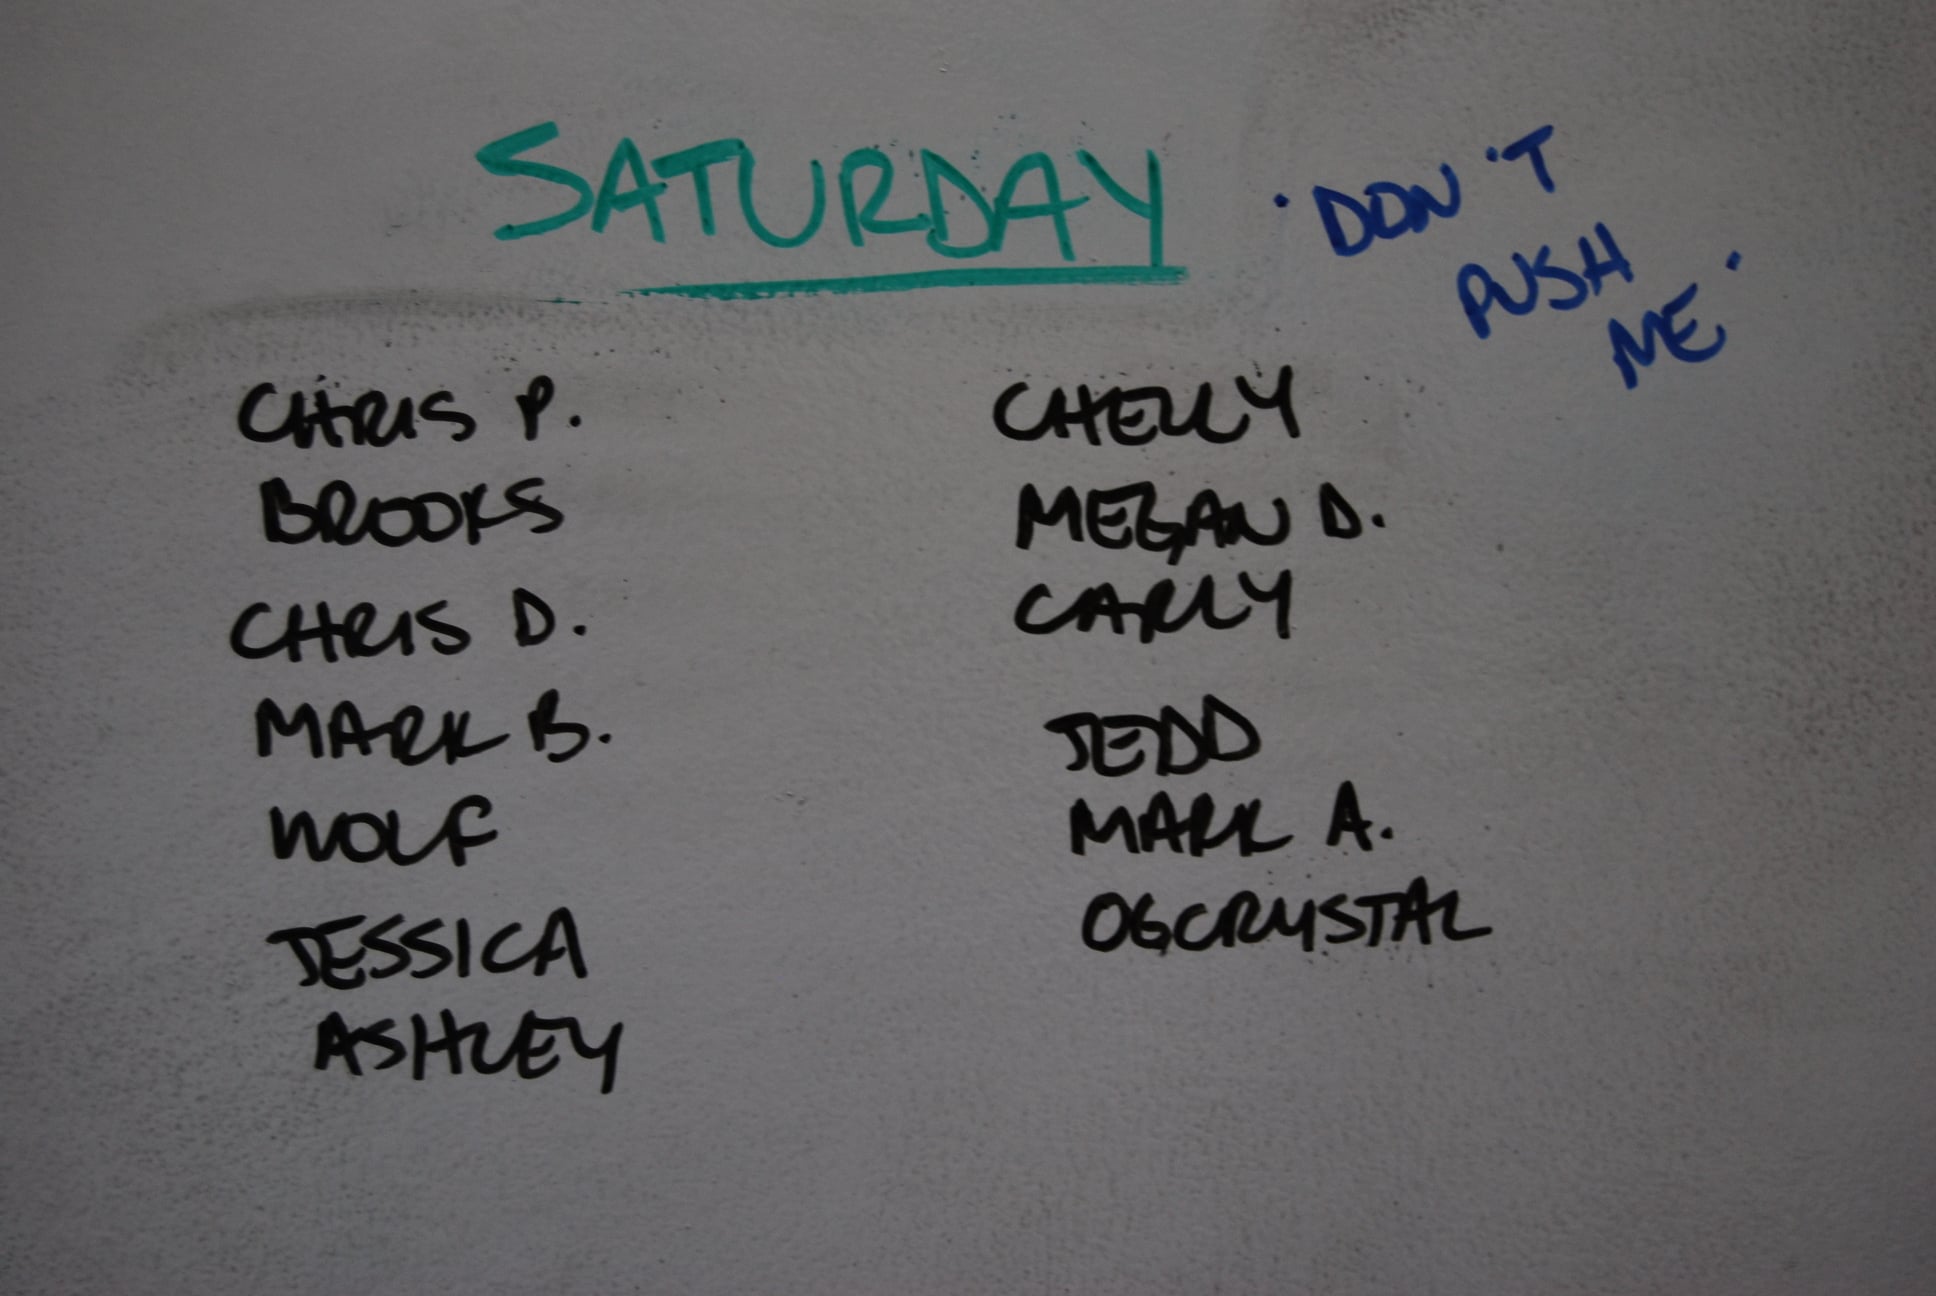 SATURDAY
"DON'T
PUSH
ME"
CHRIS P.
BROOKS
CHRIS D.
MARK B.
WOLF
JESSICA
ASHLEY
CHELLY
MEGAN D.
CARLY
JEDD
MARK A.
OGCRYSTAL